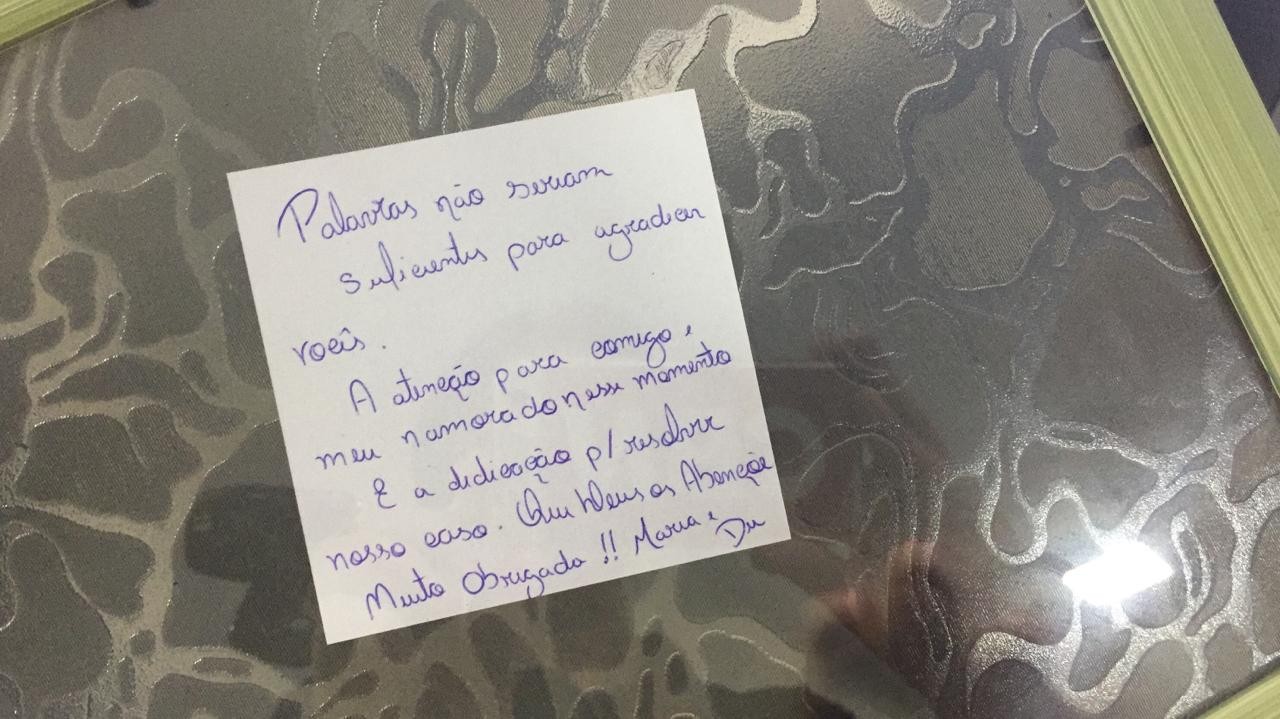 Palavras não seriam
suficientes para agradecer
vocês.
A atenção para comigo e
meu namorado nesse momento
E a dedicação p/ resolver
nosso caso. Que Deus os Abençõe
Muito Obrigada !! Maria e Du